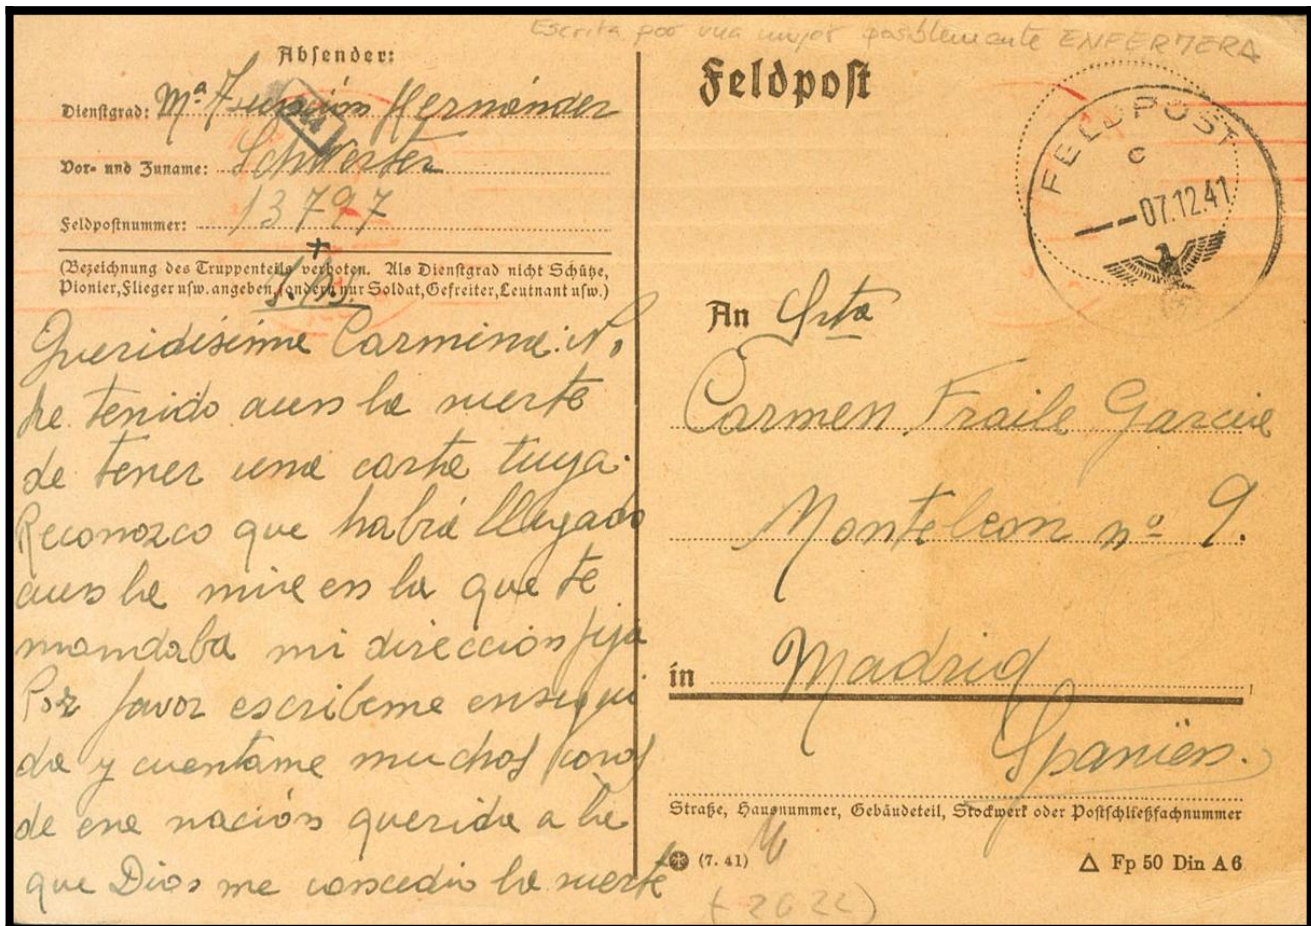 Escrita por una mujer posiblemente ENFERMERA
Absender:
Dienstgrad: Mª Hernández
Vor- und Zuname: Schwester
Feldpostnummer: 13797
(Bezeichnung des Truppenteils verboten. Als Dienstgrad nicht Schütze,
Pionier, Flieger usw. angeben, sondern nur Soldat, Gefreiter, Leutnant usw.)
+
Queridísima Carmina: No
he tenido aun la suerte
de tener una carta tuya.
Reconozco que habrá llegado
aun la mia en la que te
mandaba mi dirección fija
Por favor escribeme ensegui
da y cuentame muchas cosas
de esa nación querida a la
que Dios me concedio la suerte
Feldpost
FELDPOST
c
--07.12.41
An Srta
Carmen Fraile Garcia
Monteleon nº 9.
in Madrid
Spanien.
Straße, Hausnummer, Gebäudeteil, Stockwerk oder Postschließfachnummer
(7. 41)
△ Fp 50 Din A 6
(+2022)